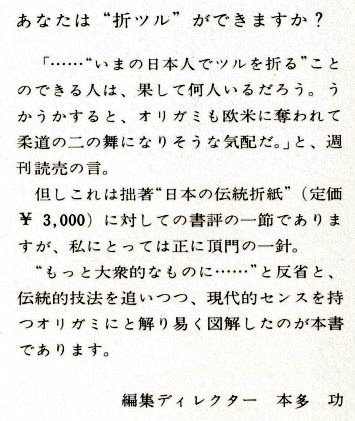 あなたは“折ツル”ができますか？
「……“いまの日本人でツルを折る”こと
のできる人は、果して何人いるだろう。う
かうかすると、オリガミも欧米に奪われて
柔道の二の舞になりそうな気配だ。」と、週
刊読売の言。
但しこれは拙著“日本の伝統折紙”（定価
¥ 3,000）に対しての書評の一節でありま
すが、私にとっては正に頂門の一針。
“もっと大衆的なものに……”と反省と、
伝統的技法を追いつつ、現代的センスを持
つオリガミにと解り易く図解したのが本書
であります。
編集ディレクター　本多　功